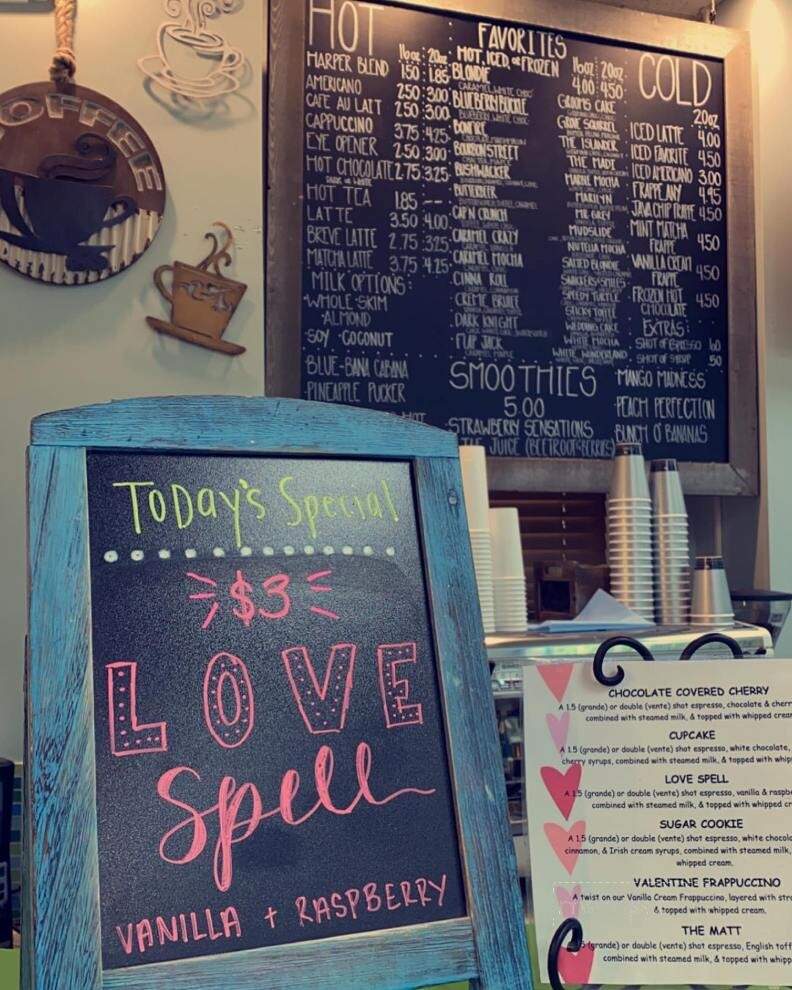 COFFEE
HOT
16oz 20oz
HARPER BLEND 1.50 1.85
AMERICANO 2.50 3.00
CAFE AU LAIT 2.50 3.00
CAPPUCCINO 3.75 4.25
EYE OPENER 2.50 3.00
HOT CHOCOLATE 2.75 3.25
DARK OR WHITE
HOT TEA 1.85 --
LATTE 3.50 4.00
BREVE LATTE 2.75 3.25
MATCHA LATTE 3.75 4.25
MILK OPTIONS:
WHOLE-SKIM
-ALMOND
-SOY -COCONUT
FAVORITES
HOT, ICED, or FROZEN
16oz 20oz
4.00 4.50
BLONDIE
CARAMEL, WHITE CHOC
BLUEBERRI BUCKLE
BLUEBERRY, WHITE CHOC
BONFIRE
BOURBON STREET
BUSHWACKER
BUTTERBEER
CAP'N CRUNCH
CARAMEL CRAZY
CARAMEL MOCHA
CINNA ROLL
CREME BRULEE
DARK KNIGHT
FLAP JACK
CARAMEL MAPLE
GROOMS CAKE
GROVE SQUIRREL
THE ISLANDER
THE MADE
MARBLE MOCHA
MARILYN
MR GREY
MUDSLIDE
NUTELLA MOCHA
SALTED BLONDIE
SNICKERS SMILES
SPEEDY TURTLE
STICKY TOFFEE
WEDDING CAKE
WHITE MOCHA
WHITE WONDERLAND
COLD
20oz
ICED LATTE 4.00
ICED FAVORITE 4.50
ICED AMERICANO 3.00
FRAPPE ANY 4.95
JAVA CHIP FRAPPE 4.50
MINT MATCHA
FRAPPE 4.50
VANILLA CREAM
FRAPPE 4.50
FROZEN HOT
CHOCOLATE 4.50
EXTRAS:
SHOT OF ESPRESSO .60
SHOT OF SYRUP .50
SMOOTHIES
5.00
BLUE-BANA CABANA
PINEAPPLE PUCKER
STRAWBERRY SENSATIONS
JUICE (BEETROOT&BERRIES)
MANGO MADNESS
PEACH PERFECTION
BUNCH O' BANANAS
Today's Special
$3
LOVE
Spell
VANILLA + RASPBERRY
CHOCOLATE COVERED CHERRY
A 1.5 (grande) or double (vente) shot espresso, chocolate & cherr
combined with steamed milk, & topped with whipped crea
CUPCAKE
A 1.5 (grande) or double (vente) shot espresso, white chocolate,
cherry syrups, combined with steamed milk, & topped with whip
LOVE SPELL
A 1.5 (grande) or double (vente) shot espresso, vanilla & raspbe
combined with steamed milk, & topped with whipped cr
SUGAR COOKIE
A 1.5 (grande) or double (vente) shot espresso, white chocola
cinnamon, & Irish cream syrups, combined with steamed milk,
whipped cream.
VALENTINE FRAPPUCCINO
A twist on our Vanilla Cream Frappuccino, layered with stra
& topped with whipped cream.
THE MATT
(grande) or double (vente) shot espresso, English toff
combined with steamed milk, & topped with whipp